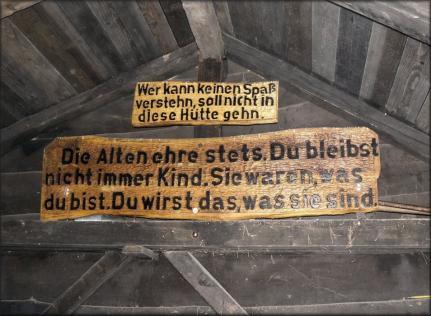 Wer kann keinen Spaß
verstehn, soll nicht in
diese Hütte gehn.
Die Alten ehre stets. Du bleibst
nicht immer Kind. Sie waren, was
du bist. Du wirst das, was sie sind.